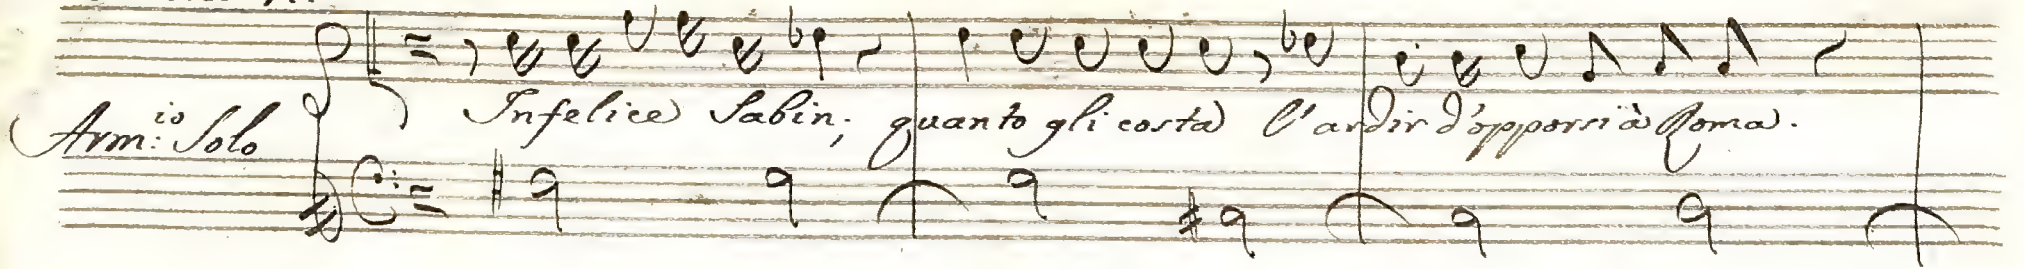 Arm:io Solo
Infelice Sabin; quanto gli costa l'ardir d'opporsi à Roma.